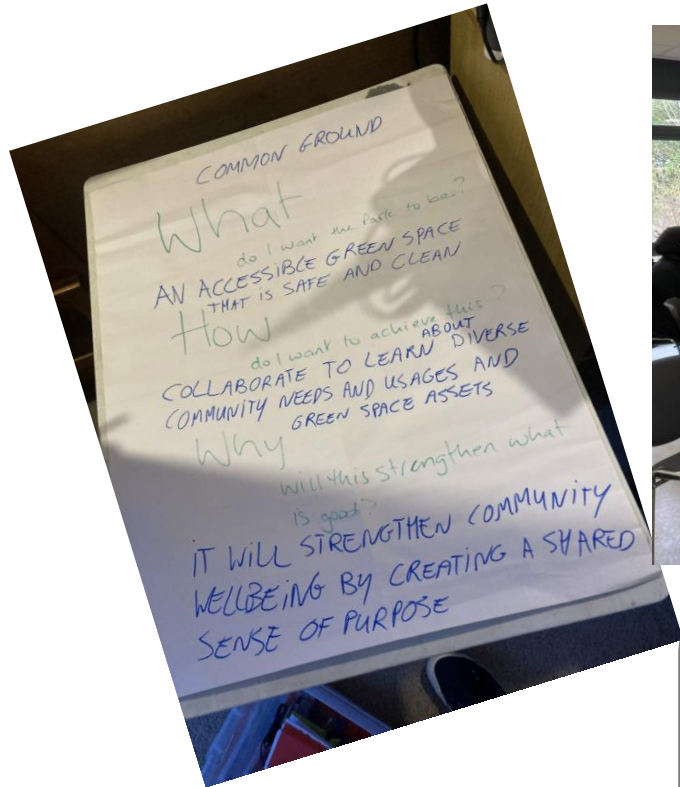 COMMON GROUND
What
do I want the Park to be?
AN ACCESSIBLE GREEN SPACE
THAT IS SAFE AND CLEAN
How
do I want to achieve this?
COLLABORATE TO LEARN ABOUT DIVERSE
COMMUNITY NEEDS AND USAGES AND
GREEN SPACE ASSETS
Why
will this strengthen what
is good?
IT WILL STRENGTHEN COMMUNITY
WELLBEING BY CREATING A SHARED
SENSE OF PURPOSE